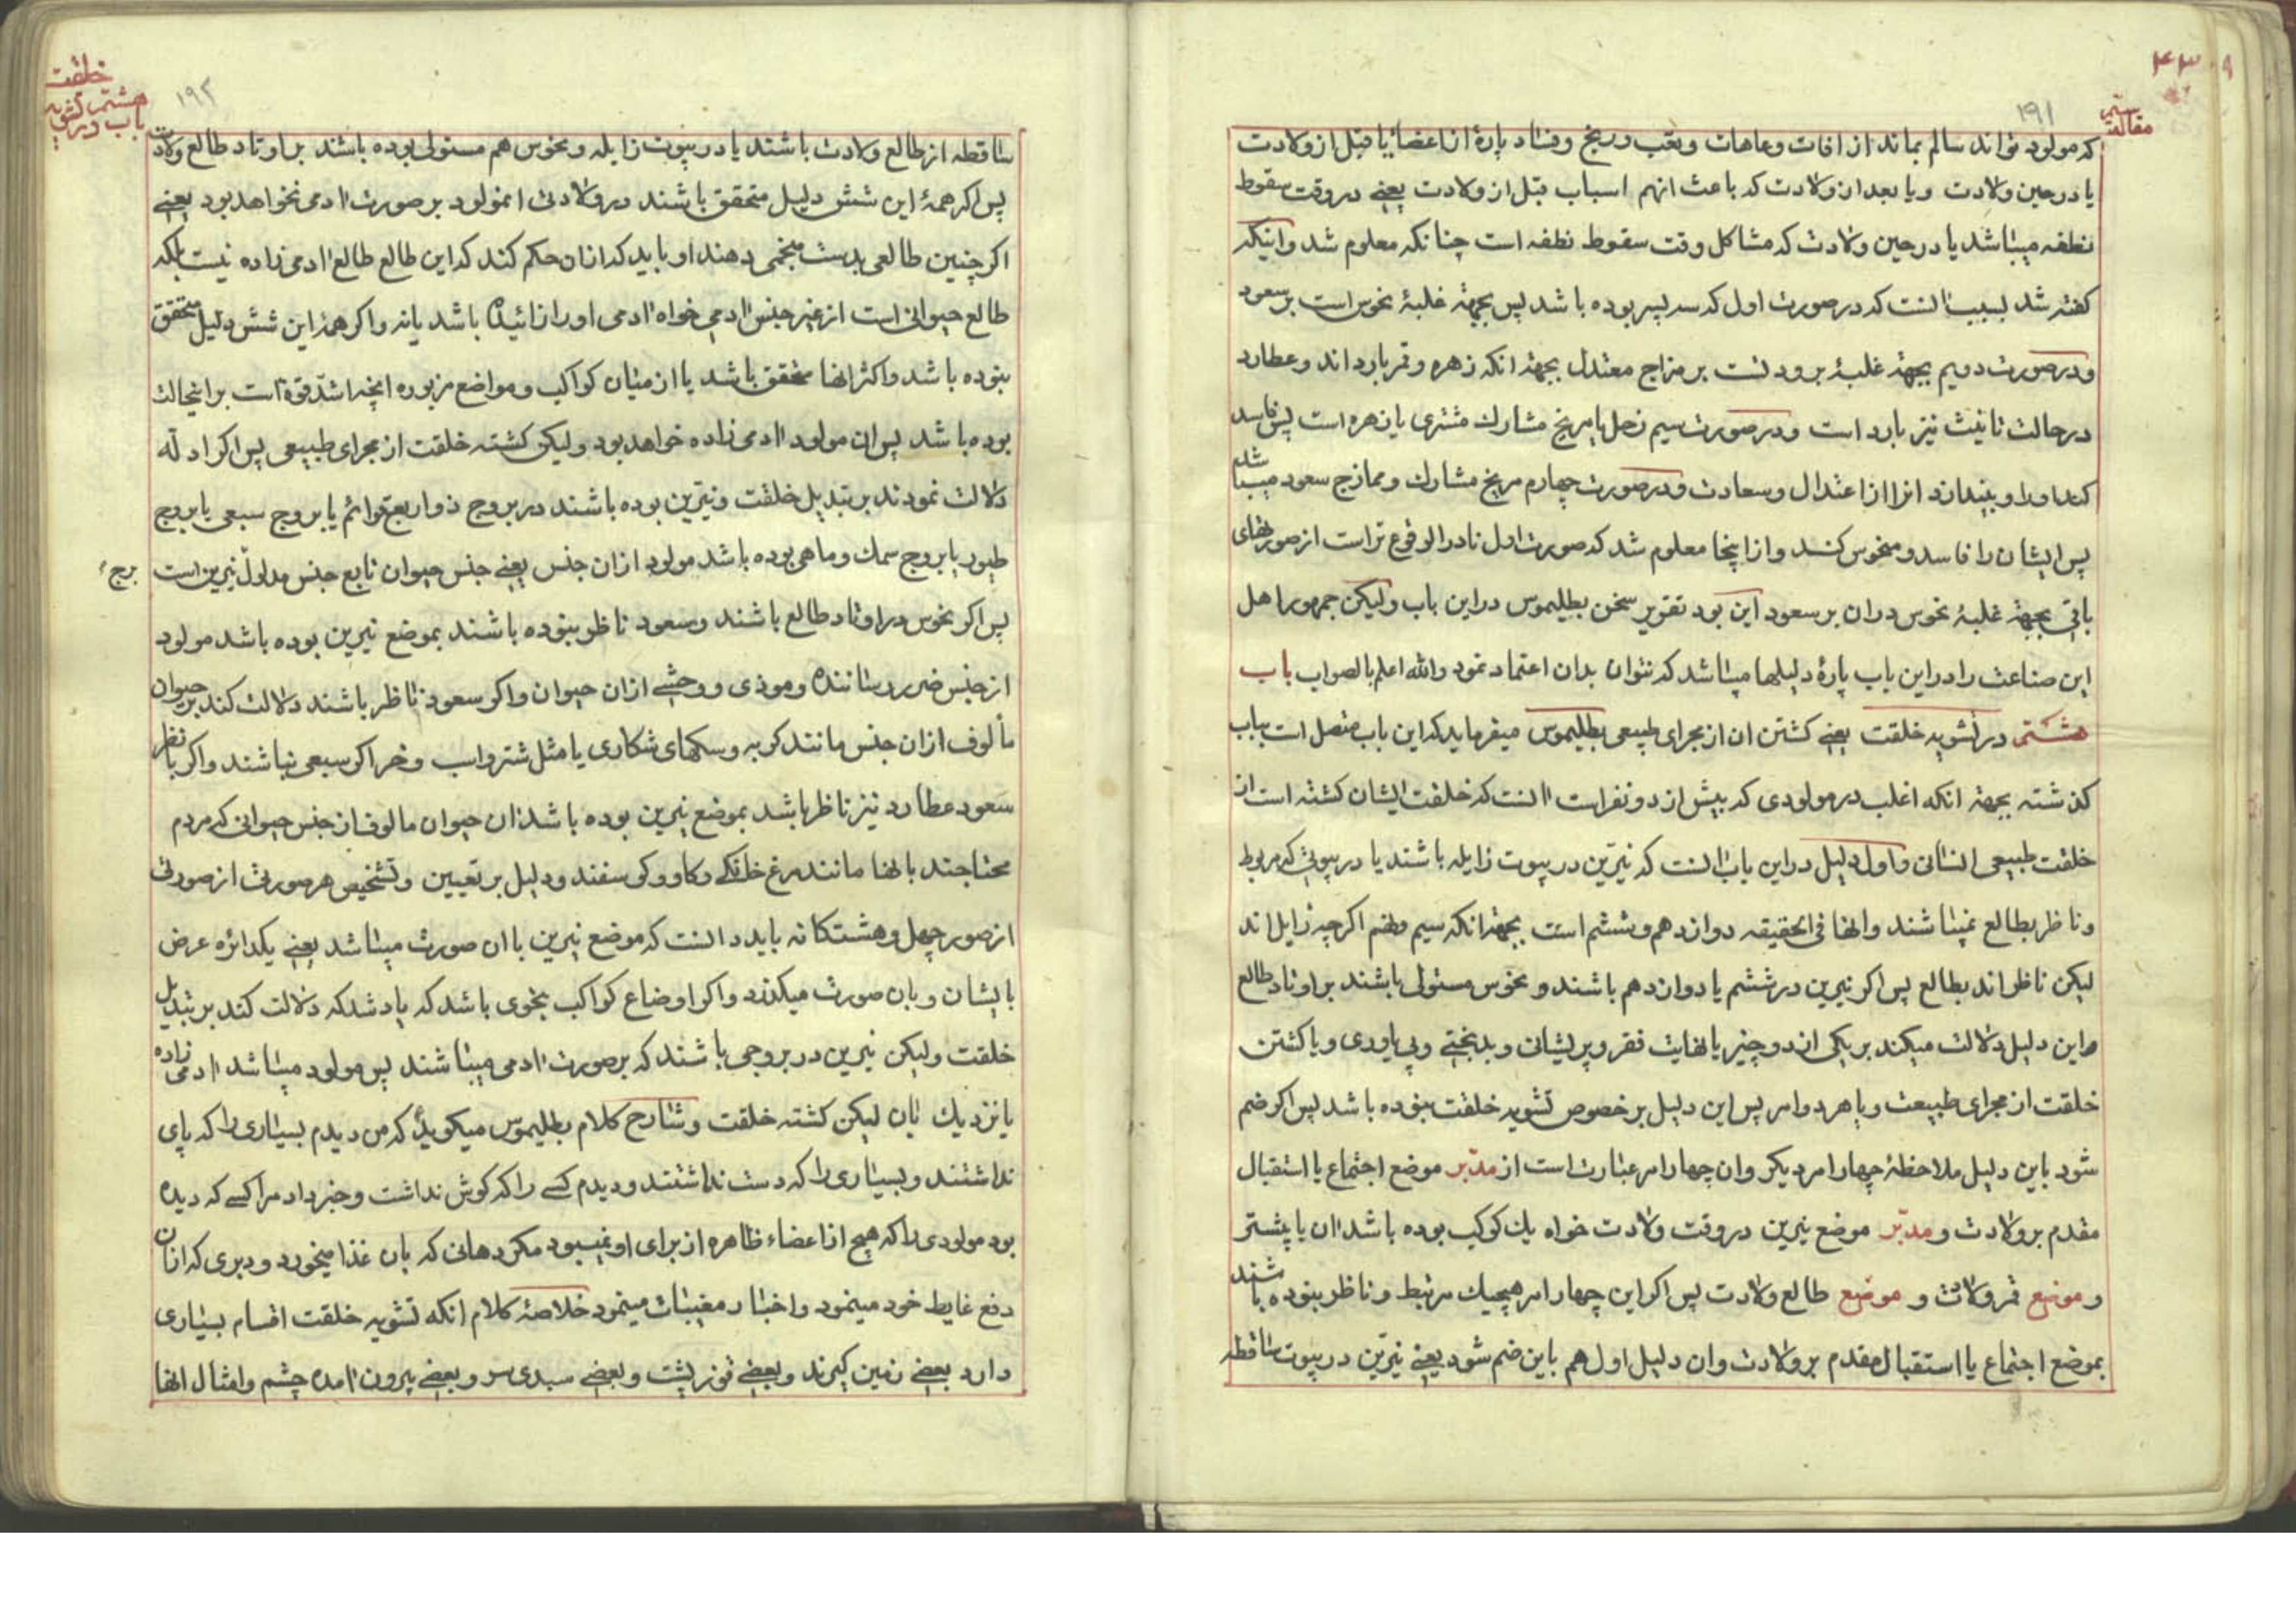 ۴۳۰۹
مقالهٔ سیم
۱۹۱
که مولود تواند سالم بماند از افات و عاهات و تعب و رنج و فساد پارهٔ از اعضا یا قبل از ولادت
یا در حین ولادت و یا بعد از ولادت که باعث انهم اسباب قبل از ولادت یعنے در وقت سقوط
نطفه میباشد یا در حین ولادت که مشاکل وقت سقوط نطفه است چنانکه معلوم شد و اینکه
کفته شد بسبب انست که در صورت اول که سه پسر بوده باشد پس بجهة غلبهٔ نحوس است بر سعود
و در صورت دویم بجهة غلبهٔ برودتست بر مزاج معتدل بجهة انکه زهره و قمر بارد اند و عطارد
در حالت تانیث نیز بارد است و در صورت سیم زحل یا مریخ مشارك مشتری یا زهره است پس فاسد
کند او را و بیندازد انرا از اعتدال و سعادت و در صورت چهارم مریخ مشارك و ممازج سعود میباشد
پس ایشان را فاسد و منحوس کند و از اینجا معلوم شد که صورت اول نادر الوقوع تر است از صورتهای
باقی بجهة غلبهٔ نحوس در ان بر سعود این بود تقریر سخن بطلیموس در این باب و لیکن جمهور اهل
این صناعت را در این باب پارهٔ دلیلها میباشد که نتوان بدان اعتماد نمود والله اعلم بالصواب باب
هشتم در تشویه خلقت یعنے کشتن ان از مجرای طبیعی بطلیموس میفرماید که این باب متصل است بباب
کذشته بجهة انکه اغلب در مولودی که بیش از دو نفر است انست که خلقت ایشان کشته است از
خلقت طبیعی انسانی و اول دلیل در این باب انست که نیّرین در بیوت زایله باشند یا در بیوتی که مربوط
و ناظر بطالع نمیباشند و انها فی الحقیقه دوازدهم و ششم است بجهة انکه سیم و نهم اکر چه زایل اند
لیکن ناظر اند بطالع پس اکر نیرین در ششم یا دوازدهم باشند و نحوس مستولی باشند بر اوتاد طالع
و این دلیل دلالت میکند بر یکی از دو چیز یا نهایت فقر و پریشانی و بدبختے و بی یاوری و یا کشتن
خلقت از مجرای طبیعت و یا هر دو امر پس این دلیل بر خصوص تشویه خلقت نبوده باشد پس اکر ضم
شود باین دلیل ملاحظهٔ چهار امر دیکر و ان چهار امر عبارت است از مدبّر موضع اجتماع یا استقبال
مقدم بر ولادت و مدبّر موضع نیرین در وقت ولادت خواه یك کوکب بوده باشد ان یا بیشتر
و موضع قمر ولادت و موضع طالع ولادت پس اکر این چهار امر هیچیك مرتبط و ناظر نبوده باشند
بموضع اجتماع یا استقبال مقدم بر ولادت و ان دلیل اول هم باین ضم شود یعنے نیّرین در بیوت ساقطه
خلقت
باب هشتم در تشویه
۱۹۲
ساقطه از طالع ولادت باشند یا در بیوت زایله و نحوس هم مستولی بوده باشند بر اوتاد طالع ولادت
پس اکر همهٔ این شش دلیل متحقق باشند در ولادتی انمولود بر صورت ادمی نخواهد بود یعنے
اکر چنین طالعی بدست منجمی دهند او باید که از ان حکم کند که این طالع طالع ادمی زاده نیست بلکه
طالع حیوانی است از غیر جنس ادمی خواه ادمی او را زائیده باشد یا نه و اکر همهٔ این شش دلیل متحقق
نبوده باشد و اکثر انها متحقق باشد یا از میان کواکب و مواضع مزبوره انچه اشدّ قوة است بر اینحالت
بوده باشد پس ان مولود ادمی زاده خواهد بود و لیکن کشته خلقت از مجرای طبیعی پس اکر ادلّه
دلالت نمودند بر تبدیل خلقت و نیّرین بوده باشند در بروج ذوات اربع قوائم یا بروج سبعی یا بروج
طیور یا بروج سمك و ماهی بوده باشد مولود از ان جنس یعنے جنس حیوان تابع جنس مدلول نیرین است
برج
پس اکر نحوس در اوتاد طالع باشند و سعود ناظر نبوده باشند بموضع نیرین بوده باشد مولود
از جنس ضرر رساننده و موذی و وحشے از ان حیوان و اکر سعود ناظر باشند دلالت کند بر حیوان
مألوف از ان جنس مانند کربه و سکهای شکاری یا مثل شتر و اسب و خر اکر سبعی نباشند و اکر با نظر
سعود عطارد نیز ناظر باشد بموضع نیرین بوده باشد ان حیوان مالوف از جنس حیوانی که مردم
محتاجند بانها مانند مرغ خانکے و کاو و کوسفند و دلیل بر تعیین و تشخیص هر صورتی از صورتی
از صور چهل و هشتکانه باید دانست که موضع نیرین با ان صورت میباشد یعنے یکدائره عرض
بایشان و بان صورت میکذرد و اکر اوضاع کواکب بنحوی باشد که یاد شد که دلالت کند بر تبدیل
خلقت و لیکن نیرین در بروجی باشند که بر صورت ادمی میباشند پس مولود میباشد ادمی زاده
یا نزدیك بان لیکن کشته خلقت و شارح کلام بطلیموس میکوید که من دیدم بسیاری را که پای
نداشتند و بسیاری را که دست نداشتند و دیدم کسے را که کوش نداشت و خبر داد مرا کسے که دیده
بود مولودی را که هیچ از اعضاء ظاهره از برای او نمیبود مکر دهانی که بان غذا میخورد و دبری که از ان
دفع غایط خود مینمود و اخبار مغیبات مینمود خلاصهٔ کلام انکه تشویه خلقت اقسام بسیاری
دارد بعضے زمین کیرند و بعضے قوز پشت و بعضے سبدی سر و بعضے بیرون امده چشم و امثال انها